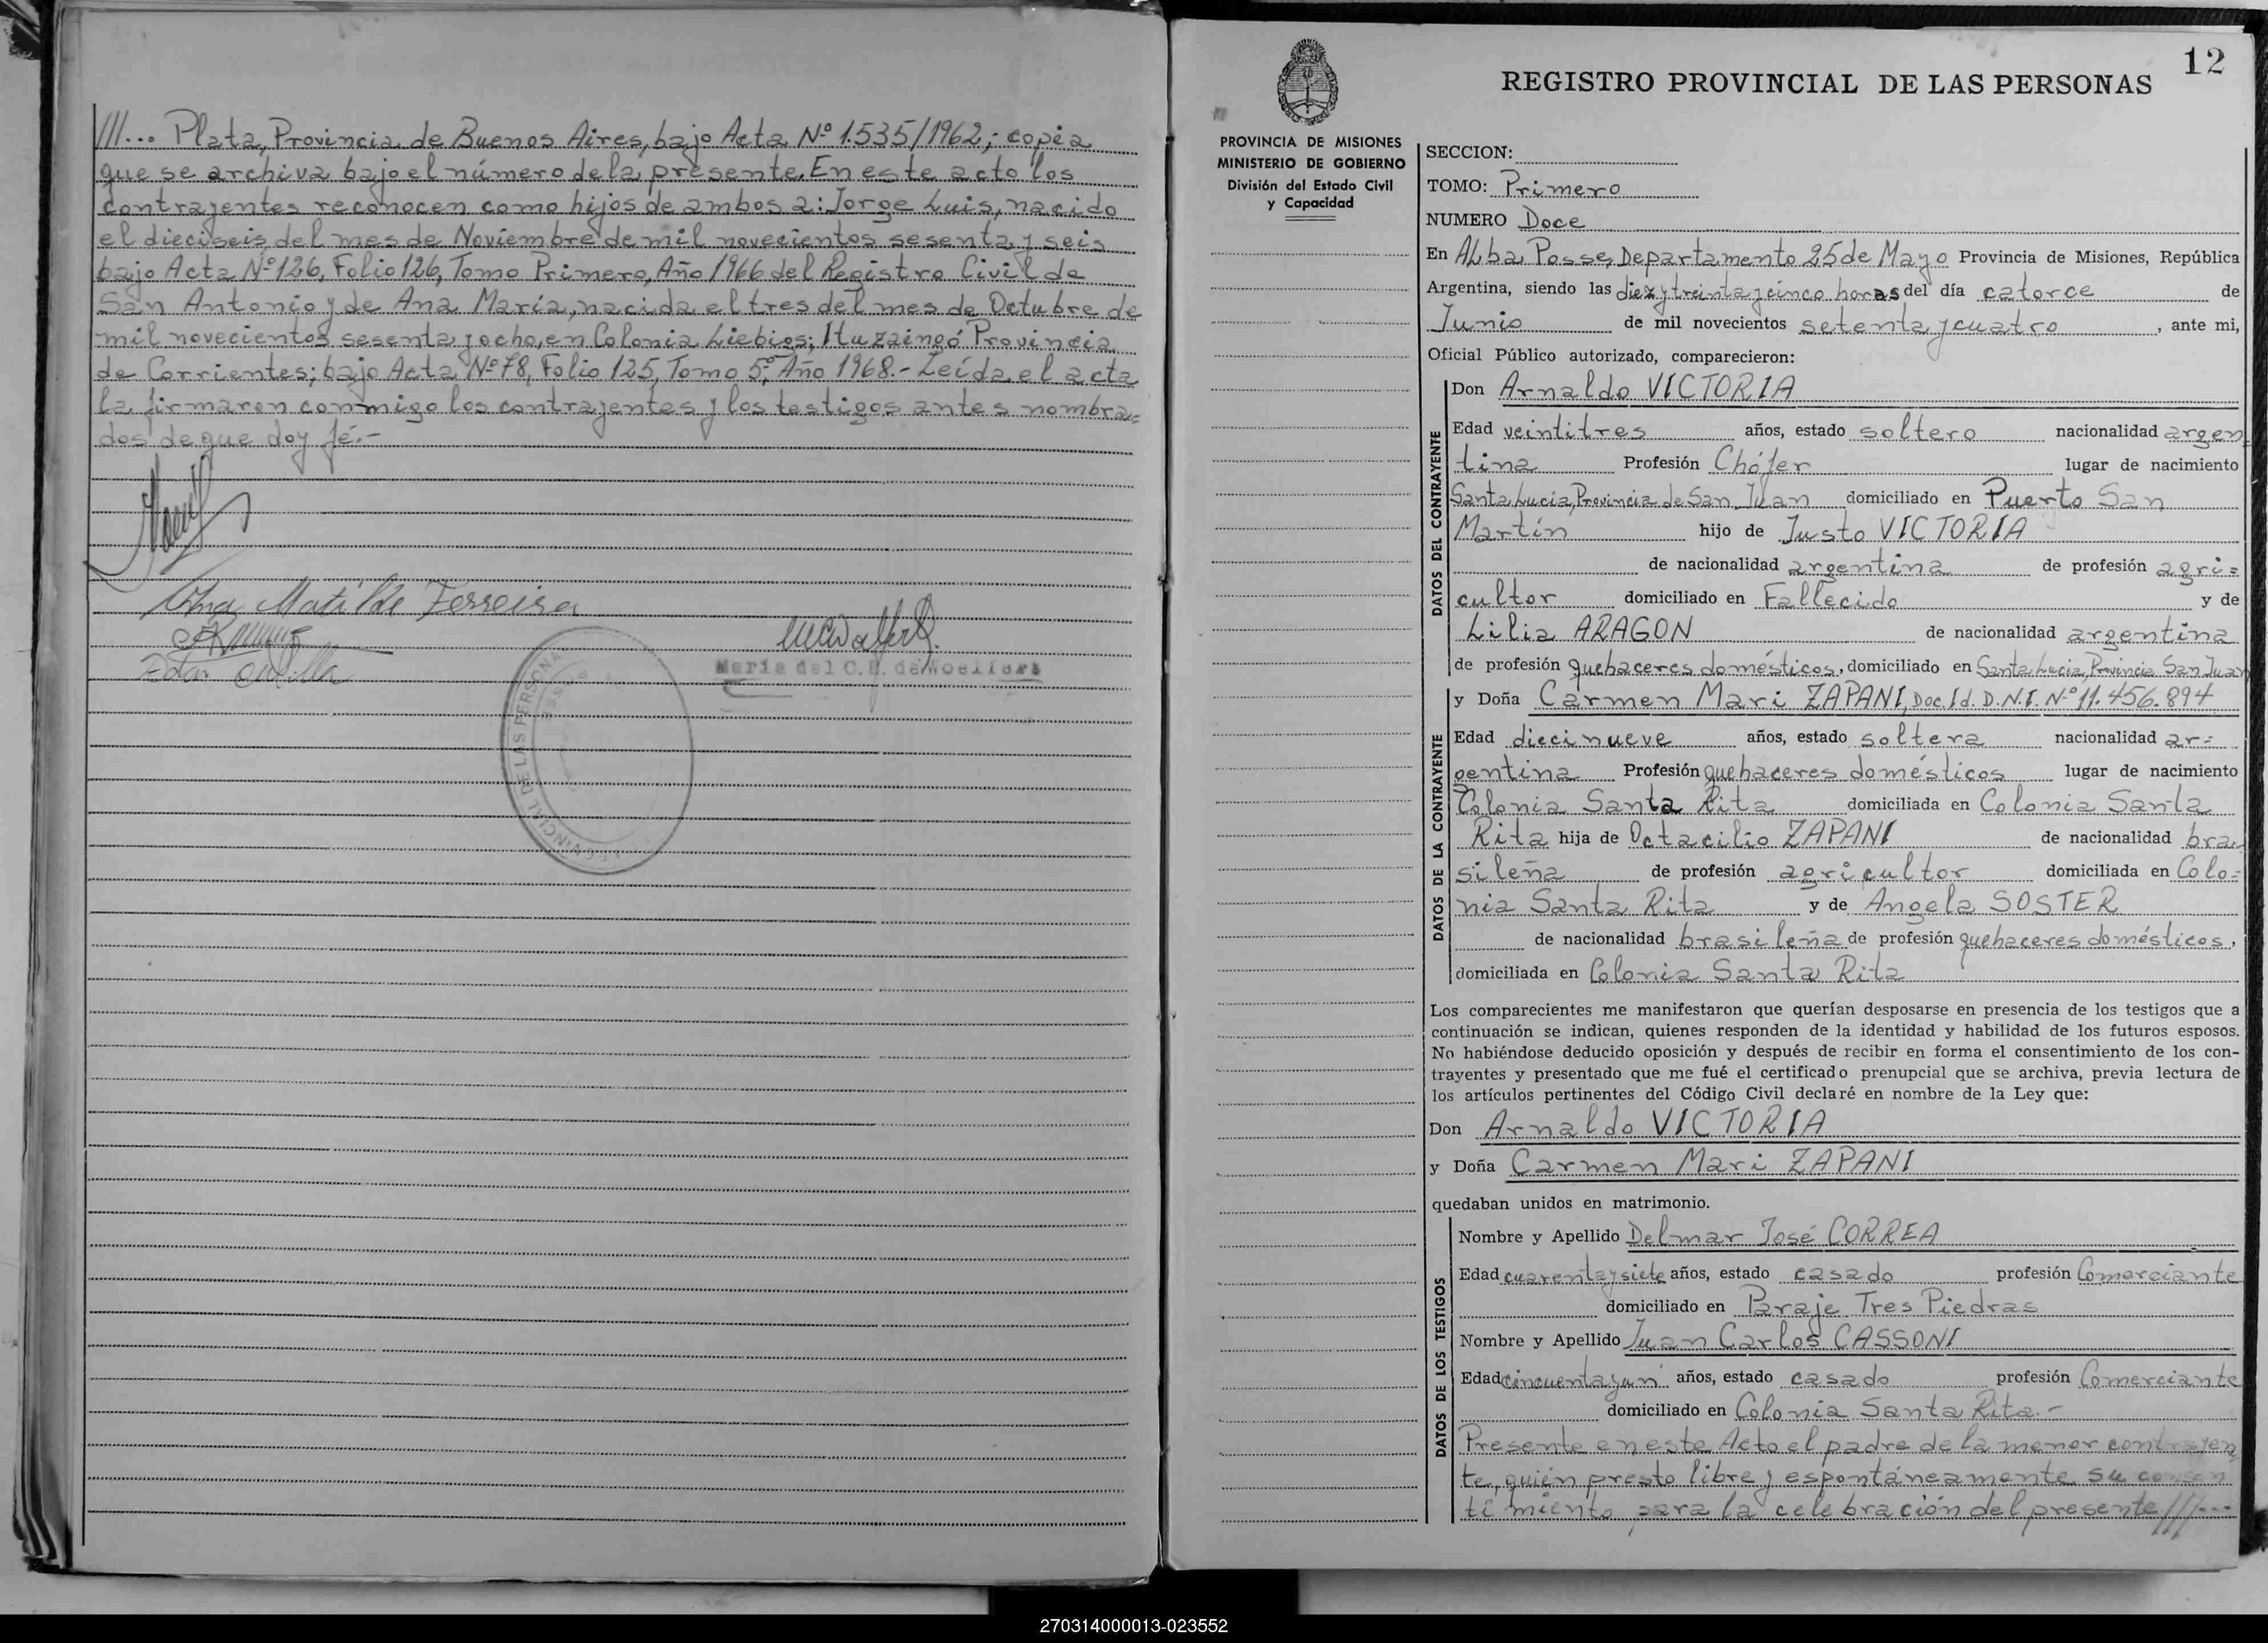 III... Plata, Provincia de Buenos Aires, bajo Acta Nº 1.535/1962; copia
que se archiva bajo el número de la presente. En este acto los
contrayentes reconocen como hijos de ambos a: Jorge Luis, nacido
el dieciseis del mes de Noviembre de mil novecientos sesenta y seis
bajo Acta Nº 126, Folio 126, Tomo Primero, Año 1966 del Registro Civil de
San Antonio y de Ana María, nacida el tres del mes de Octubre de
mil novecientos sesenta y ocho, en Colonia Liebigs; Ituzaingó Provincia
de Corrientes; bajo Acta Nº 78, Folio 125, Tomo 5º, Año 1968.- Leída el acta
la firmaron conmigo los contrayentes y los testigos antes nombra=
dos de que doy fé.-
Matilde Ferreira
María del C.B. de Woelfert
12
REGISTRO PROVINCIAL DE LAS PERSONAS
PROVINCIA DE MISIONES
MINISTERIO DE GOBIERNO
División del Estado Civil
y Capacidad
SECCION:
TOMO: Primero
NUMERO Doce
En Alba Posse, Departamento 25 de Mayo Provincia de Misiones, República
Argentina, siendo las diez y treinta y cinco horas del día catorce de
Junio de mil novecientos setenta y cuatro, ante mi,
Oficial Público autorizado, comparecieron:
DATOS DEL CONTRAYENTE
Don Arnaldo VICTORIA
Edad veintitres años, estado soltero nacionalidad argen=
tina Profesión Chófer lugar de nacimiento
Santa Lucía, Provincia de San Juan domiciliado en Puerto San
Martín hijo de Justo VICTORIA
de nacionalidad argentina de profesión agri=
cultor domiciliado en Fallecido y de
Lilia ARAGON de nacionalidad argentina
de profesión quehaceres domésticos, domiciliado en Santa Lucía, Provincia San Juan
DATOS DE LA CONTRAYENTE
y Doña Carmen Mari ZAPANI, Doc. Id. D.N.I. Nº 11.456.894
Edad diecinueve años, estado soltera nacionalidad ar=
gentina Profesión quehaceres domésticos lugar de nacimiento
Colonia Santa Rita domiciliada en Colonia Santa
Rita hija de Octacilio ZAPANI de nacionalidad bra=
sileña de profesión agricultor domiciliada en Colo=
nia Santa Rita y de Angela SOSTER
de nacionalidad brasileña de profesión quehaceres domésticos,
domiciliada en Colonia Santa Rita
Los comparecientes me manifestaron que querían desposarse en presencia de los testigos que a
continuación se indican, quienes responden de la identidad y habilidad de los futuros esposos.
No habiéndose deducido oposición y después de recibir en forma el consentimiento de los con-
trayentes y presentado que me fué el certificado prenupcial que se archiva, previa lectura de
los artículos pertinentes del Código Civil declaré en nombre de la Ley que:
Don Arnaldo VICTORIA
y Doña Carmen Mari ZAPANI
quedaban unidos en matrimonio.
DATOS DE LOS TESTIGOS
Nombre y Apellido Delmar José CORREA
Edad cuarenta y siete años, estado casado profesión Comerciante
domiciliado en Paraje Tres Piedras
Nombre y Apellido Juan Carlos CASSONI
Edad cincuenta y un años, estado casado profesión Comerciante
domiciliado en Colonia Santa Rita.-
Presente en este Acto el padre de la menor contrayen
te, quién presto libre y espontáneamente su consen
timiento para la celebración del presente///...
270314000013-023552